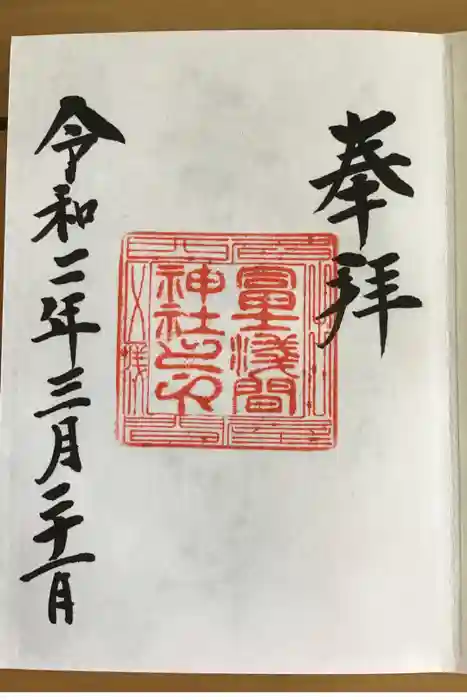 奉拝
冨士浅間
神社之印
令和二年三月二十一日